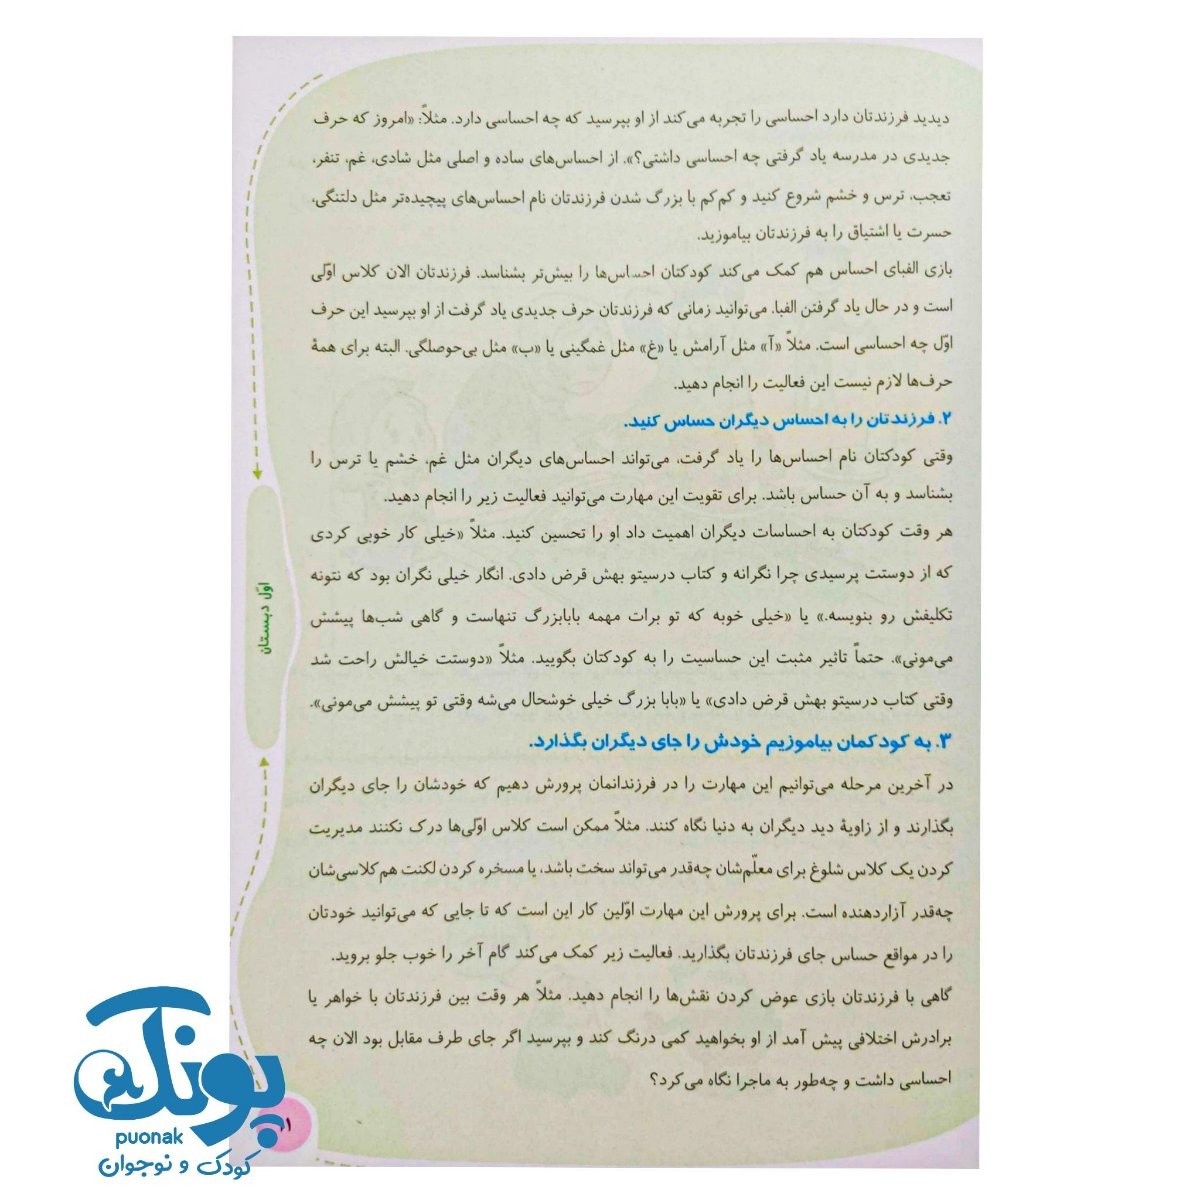 دیدید فرزندتان دارد احساسی را تجربه می‌کند از او بپرسید که چه احساسی دارد. مثلاً: «امروز که حرف
جدیدی در مدرسه یاد گرفتی چه احساسی داشتی؟». از احساس‌های ساده و اصلی مثل شادی، غم، تنفر،
تعجب، ترس و خشم شروع کنید و کم‌کم با بزرگ شدن فرزندتان نام احساس‌های پیچیده‌تر مثل دلتنگی،
حسرت یا اشتیاق را به فرزندتان بیاموزید.
بازی الفبای احساس هم کمک می‌کند کودکتان احساس‌ها را بیش‌تر بشناسد. فرزندتان الان کلاس اوّلی
است و در حال یاد گرفتن الفبا. می‌توانید زمانی که فرزندتان حرف جدیدی یاد گرفت از او بپرسید این حرف
اوّل چه احساسی است. مثلاً «آ» مثل آرامش یا «غ» مثل غمگینی یا «ب» مثل بی‌حوصلگی. البته برای همهٔ
حرف‌ها لازم نیست این فعالیت را انجام دهید.
۲. فرزندتان را به احساس دیگران حساس کنید.
وقتی کودکتان نام احساس‌ها را یاد گرفت، می‌تواند احساس‌های دیگران مثل غم، خشم یا ترس را
بشناسد و به آن حساس باشد. برای تقویت این مهارت می‌توانید فعالیت زیر را انجام دهید.
هر وقت کودکتان به احساسات دیگران اهمیت داد او را تحسین کنید. مثلاً «خیلی کار خوبی کردی
که از دوستت پرسیدی چرا نگرانه و کتاب درسیتو بهش قرض دادی. انگار خیلی نگران بود که نتونه
تکلیفش رو بنویسه.» یا «خیلی خوبه که تو برات مهمه بابابزرگ تنهاست و گاهی شب‌ها پیشش
می‌مونی». حتماً تاثیر مثبت این حساسیت را به کودکتان بگویید. مثلاً «دوستت خیالش راحت شد
وقتی کتاب درسیتو بهش قرض دادی» یا «بابا بزرگ خیلی خوشحال می‌شه وقتی تو پیشش می‌مونی».
۳. به کودکمان بیاموزیم خودش را جای دیگران بگذارد.
در آخرین مرحله می‌توانیم این مهارت را در فرزندانمان پرورش دهیم که خودشان را جای دیگران
بگذارند و از زاویهٔ دید دیگران به دنیا نگاه کنند. مثلاً ممکن است کلاس اوّلی‌ها درک نکنند مدیریت
کردن یک کلاس شلوغ برای معلّم‌شان چه‌قدر می‌تواند سخت باشد، یا مسخره کردن لکنت هم‌کلاسی‌شان
چه‌قدر آزاردهنده است. برای پرورش این مهارت اوّلین کار این است که تا جایی که می‌توانید خودتان
را در مواقع حساس جای فرزندتان بگذارید. فعالیت زیر کمک می‌کند گام آخر را خوب جلو بروید.
گاهی با فرزندتان بازی عوض کردن نقش‌ها را انجام دهید. مثلاً هر وقت بین فرزندتان با خواهر یا
برادرش اختلافی پیش آمد از او بخواهید کمی درنگ کند و بپرسید اگر جای طرف مقابل بود الان چه
احساسی داشت و چه‌طور به ماجرا نگاه می‌کرد؟
اوّل دبستان
پونک
puonak
کودک و نوجوان